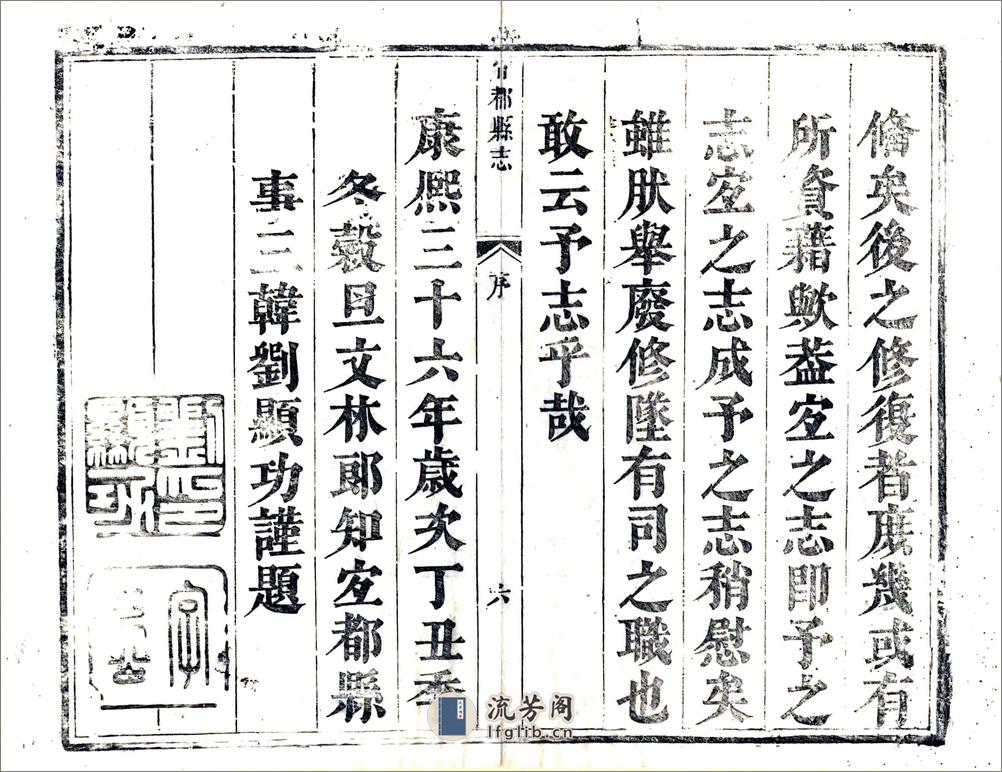 俻矣後之修復者庶幾或有
所資藉歟葢宜之志即予之
志宜之志成予之志稍慰矣
雖肰舉廢修墜有司之職也
敢云予志乎哉
都縣志 序 六
康熙三十六年歲次丁丑季
冬穀旦文林郎知宜都縣
事三韓劉顯功謹題
劉顯功印
流芳阁
lfglib.cn